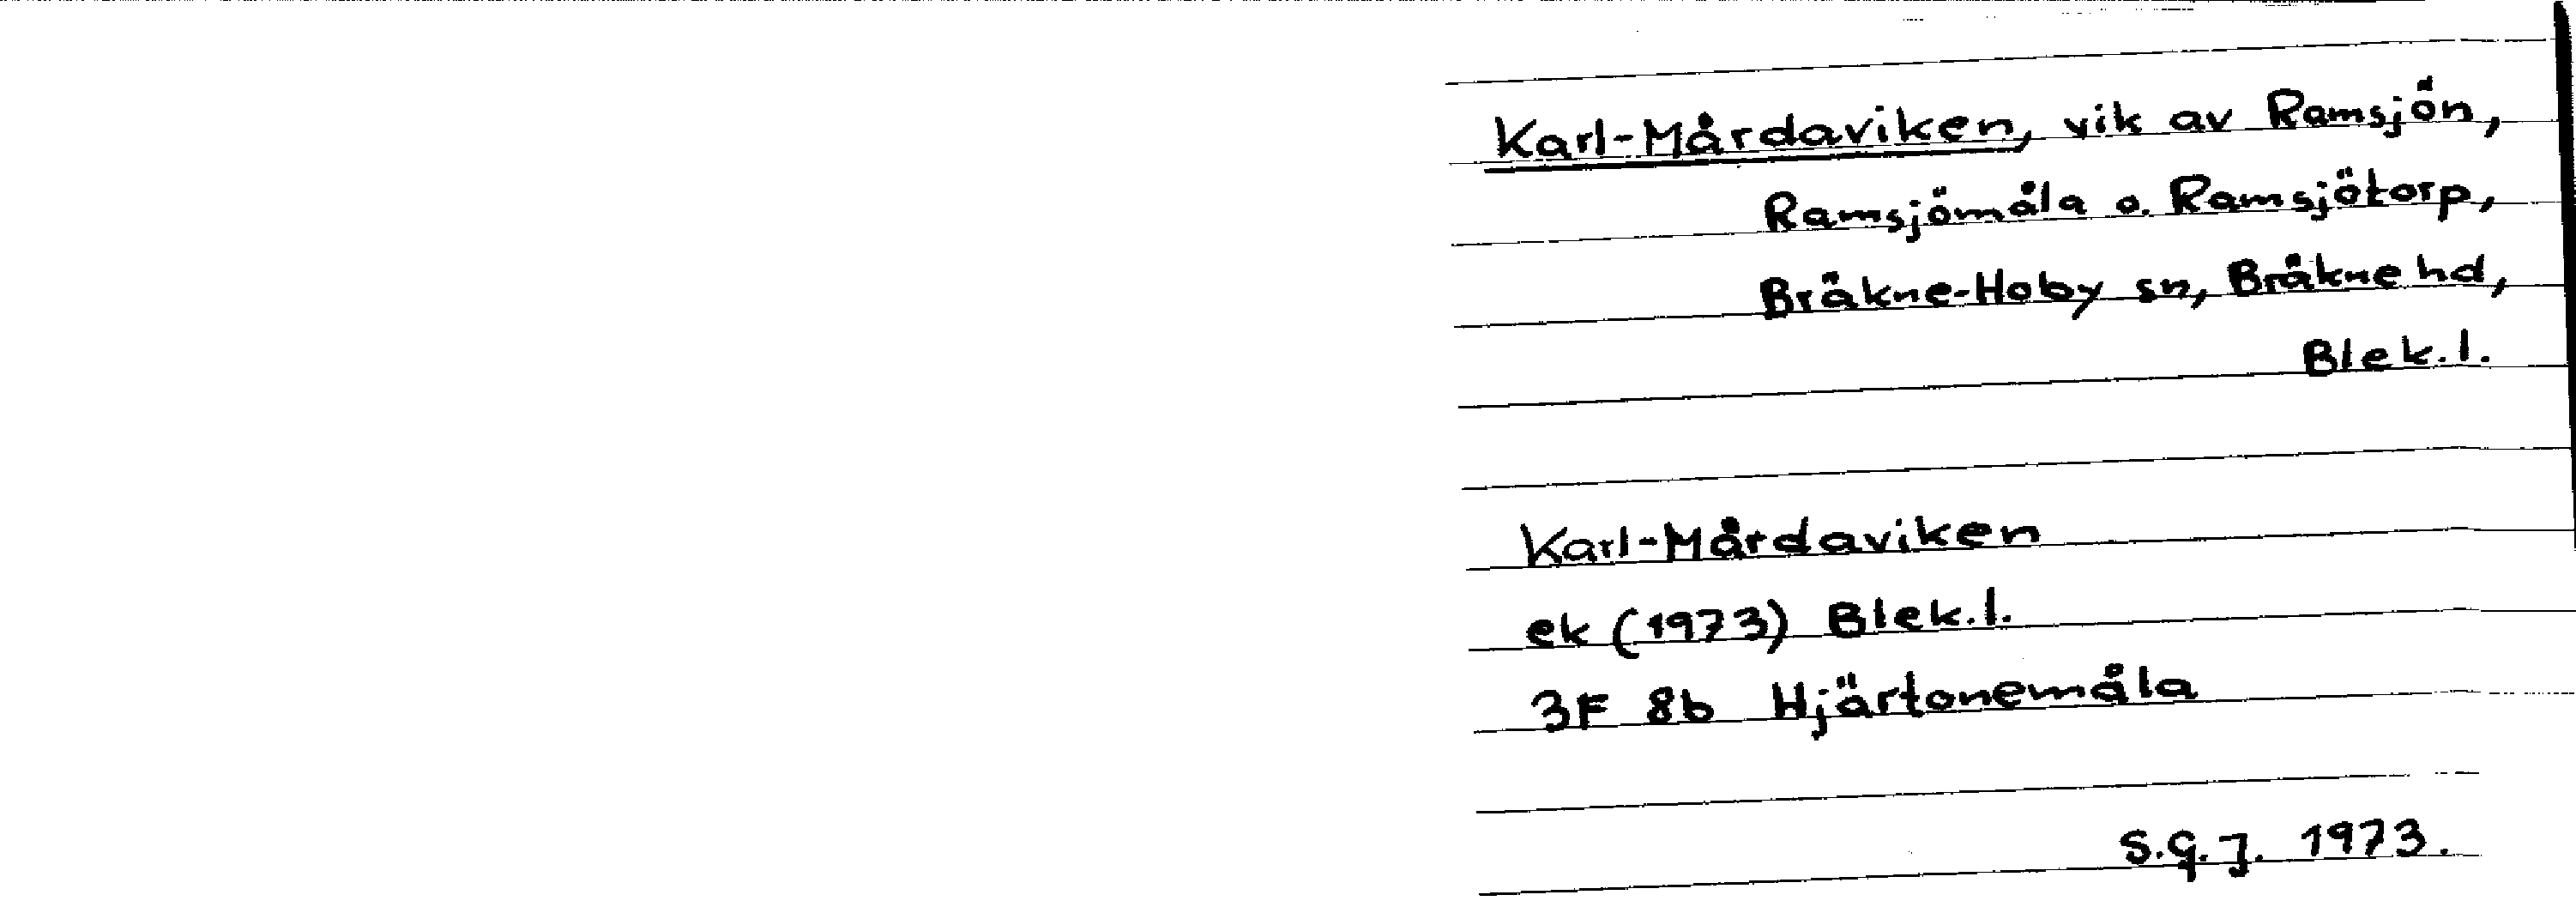 Karl-Mårdaviken, vik av Ramsjön,
Ramsjömåla o. Ramsjötorp,
Bräkne-Hoby sn, Bräkne hd,
Blek.l.
Karl-Mårdaviken
ek (1973) Blek.l.
3F 8b Hjärtonemåla
S.G.J. 1973.